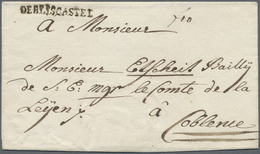 DE BLISCASTEL
a Monsieur
Monsieur Etscheit Bailly
de S: E: mgr le Comte de la
Leÿen
à
Coblence